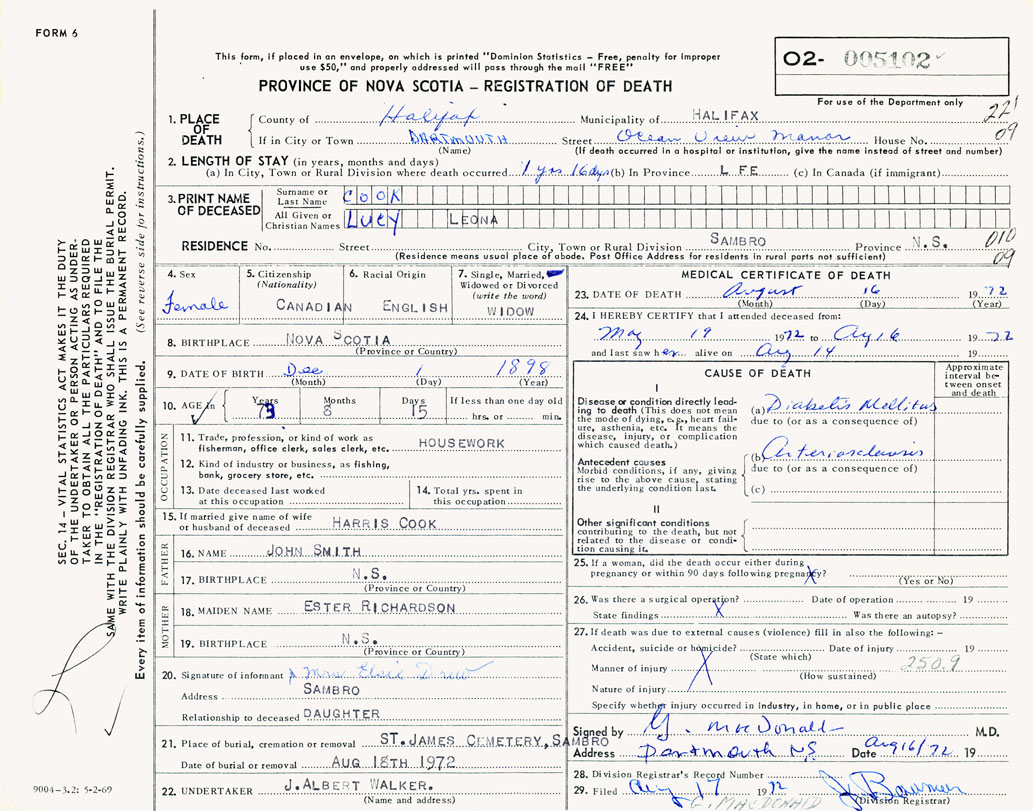 FORM 6
This form, if placed in an envelope, on which is printed "Dominion Statistics – Free, penalty for improper
use $50," and properly addressed will pass through the mail "FREE"
PROVINCE OF NOVA SCOTIA – REGISTRATION OF DEATH
O2- 005102
For use of the Department only
221
09
1. PLACE OF DEATH
County of Halifax Municipality of HALIFAX
If in City or Town DARTMOUTH Street Ocean View Manor House No.
(Name) (If death occurred in a hospital or institution, give the name instead of street and number)
2. LENGTH OF STAY (in years, months and days)
(a) In City, Town or Rural Division where death occurred 1 yrs 16 days (b) In Province L FE (c) In Canada (if immigrant)
3. PRINT NAME OF DECEASED
Surname or Last Name COOK
All Given or Christian Names LUCY LEONA
RESIDENCE No. Street City, Town or Rural Division SAMBRO Province N.S. 010
(Residence means usual place of abode. Post Office Address for residents in rural parts not sufficient) 09
4. Sex
Female
5. Citizenship
(Nationality)
CANADIAN
6. Racial Origin
ENGLISH
7. Single, Married,
Widowed or Divorced
(write the word)
WIDOW
8. BIRTHPLACE NOVA SCOTIA
(Province or Country)
9. DATE OF BIRTH Dec 1 1898
(Month) (Day) (Year)
10. AGE in Years Months Days If less than one day old
73 8 15 hrs. or min.
OCCUPATION
11. Trade, profession, or kind of work as
fisherman, office clerk, sales clerk, etc. HOUSEWORK
12. Kind of industry or business, as fishing,
bank, grocery store, etc.
13. Date deceased last worked
at this occupation
14. Total yrs. spent in
this occupation
15. If married give name of wife
or husband of deceased HARRIS COOK
FATHER
16. NAME JOHN SMITH
17. BIRTHPLACE N.S.
(Province or Country)
MOTHER
18. MAIDEN NAME ESTER RICHARDSON
19. BIRTHPLACE N.S.
(Province or Country)
20. Signature of informant Mrs Elsie Drew
Address SAMBRO
Relationship to deceased DAUGHTER
21. Place of burial, cremation or removal ST. JAMES CEMETERY, SAMBRO
Date of burial or removal AUG 18TH 1972
22. UNDERTAKER J. ALBERT WALKER.
(Name and address)
MEDICAL CERTIFICATE OF DEATH
23. DATE OF DEATH August 16 1972
(Month) (Day) (Year)
24. I HEREBY CERTIFY that I attended deceased from:
May 19 1972 to Aug 16 1972
and last saw her alive on Aug 14 19
CAUSE OF DEATH
Approximate
interval be-
tween onset
and death
I
Disease or condition directly lead-
ing to death (This does not mean
the mode of dying, e.g., heart fail-
ure, asthenia, etc. It means the
disease, injury, or complication
which caused death.)
(a) Diabetis Mellitus
due to (or as a consequence of)
Antecedent causes
Morbid conditions, if any, giving
rise to the above cause, stating
the underlying condition last.
(b) Arteriosclerosis
due to (or as a consequence of)
(c)
II
Other significant conditions
contributing to the death, but not
related to the disease or condi-
tion causing it.
25. If a woman, did the death occur either during
pregnancy or within 90 days following pregnancy?
(Yes or No)
26. Was there a surgical operation? Date of operation 19
State findings Was there an autopsy?
27. If death was due to external causes (violence) fill in also the following: –
Accident, suicide or homicide? Date of injury 19
(State which)
Manner of injury 250.9
(How sustained)
Nature of injury
Specify whether injury occurred in Industry, in home, or in public place
Signed by G. MacDonald M.D.
Address Dartmouth NS Date Aug 16/72 19
28. Division Registrar's Record Number
29. Filed Aug 17 1972
(Division Registrar)
G. MACDONALD
SEC. 14 – VITAL STATISTICS ACT MAKES IT THE DUTY
OF THE UNDERTAKER OR PERSON ACTING AS UNDER-
TAKER TO OBTAIN ALL THE PARTICULARS REQUIRED
IN THE "REGISTRATION OF DEATH" AND TO FILE THE
SAME WITH THE DIVISION REGISTRAR WHO SHALL ISSUE THE BURIAL PERMIT.
WRITE PLAINLY WITH UNFADING INK. THIS IS A PERMANENT RECORD.
Every item of information should be carefully supplied. (See reverse side for instructions.)
9004–3.2: 5-2-69